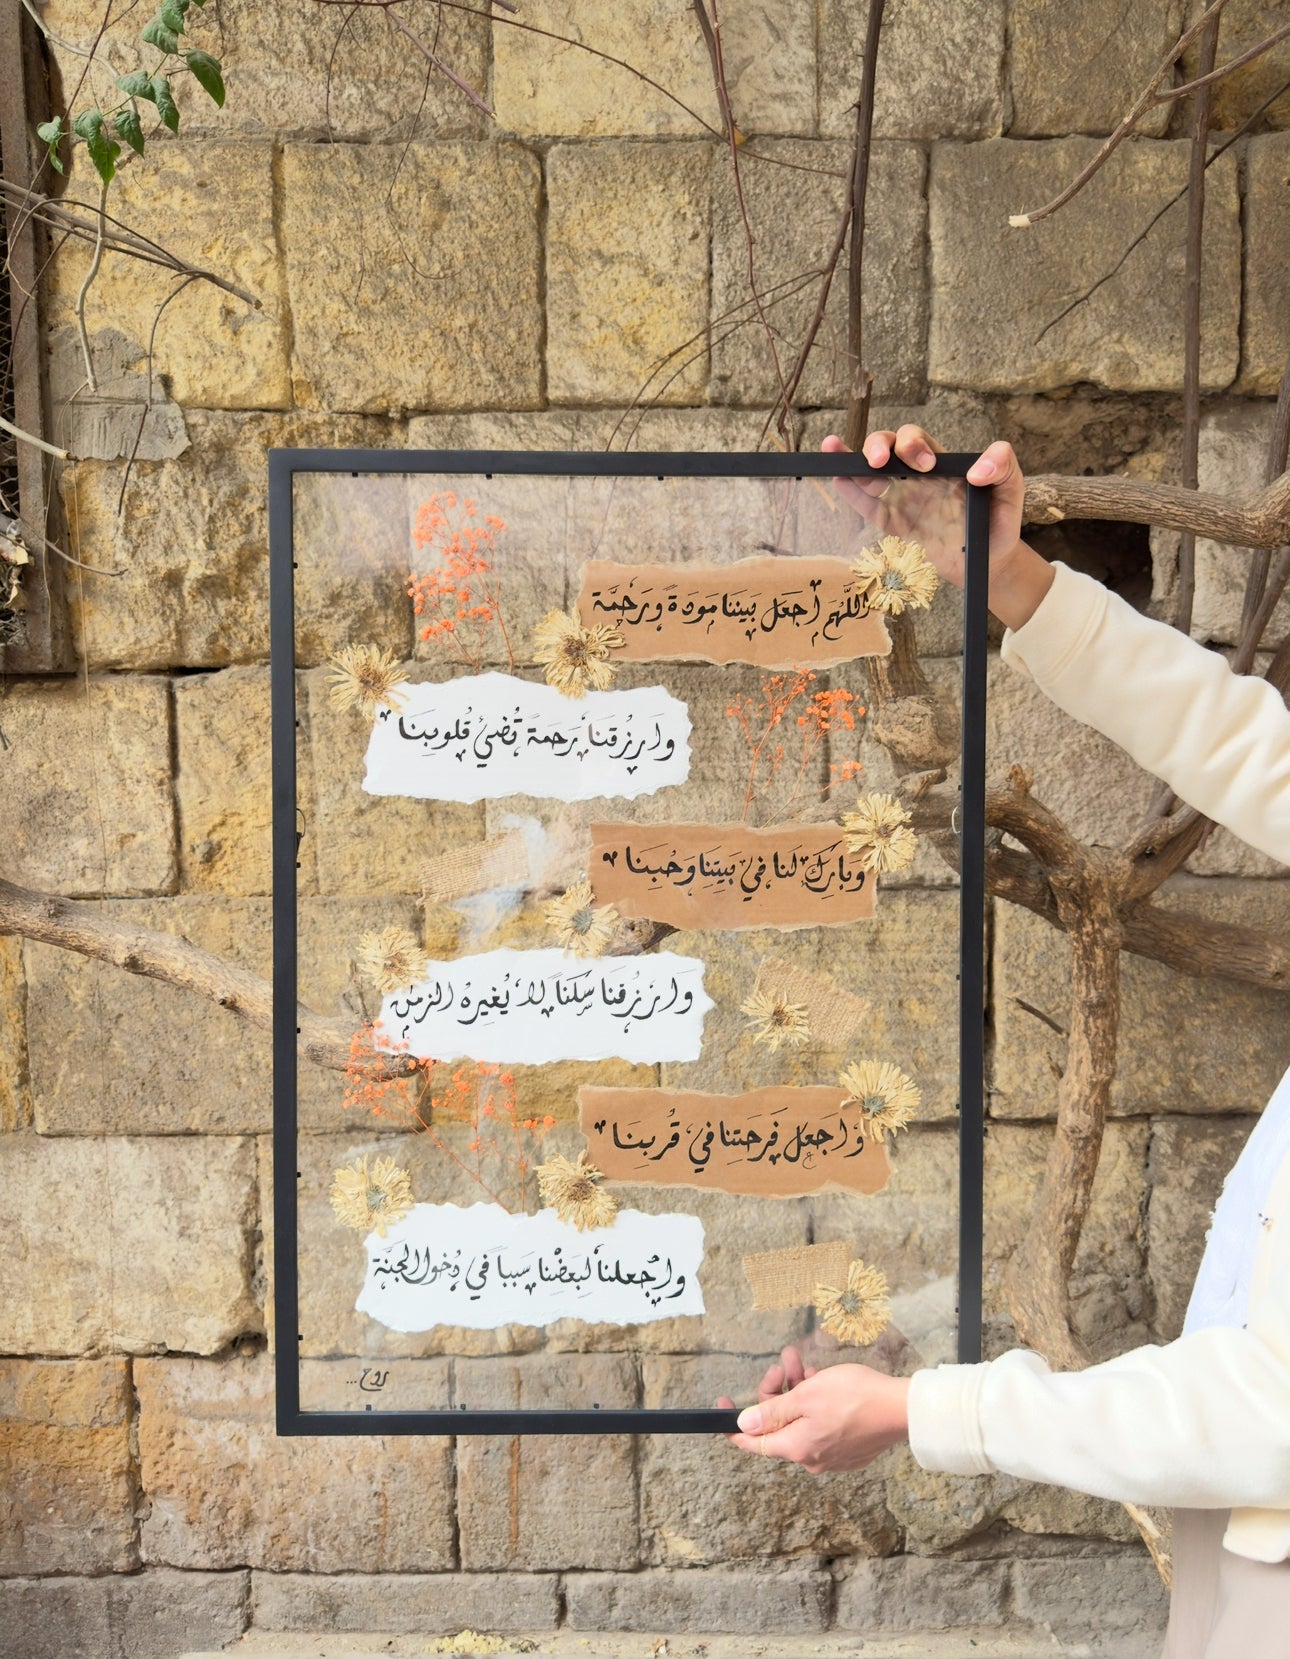 اللَّهُمَّ أجعَل بَيننا مَودةً ورَحمَة
وَارزُقنَا رَحمَةً تُضئ قُلوبِنَا
وَبارِك لَنا في بَيتِنا وَحُبِنَا
وَارزُقنا سَكَناً لا يُغيرهُ الزمن
وَاجعَل فَرحَتِنا في قُربِنَا
واجعلنا لِبَعضِنا سَبباً في دُخول الجَنَّة
روح...